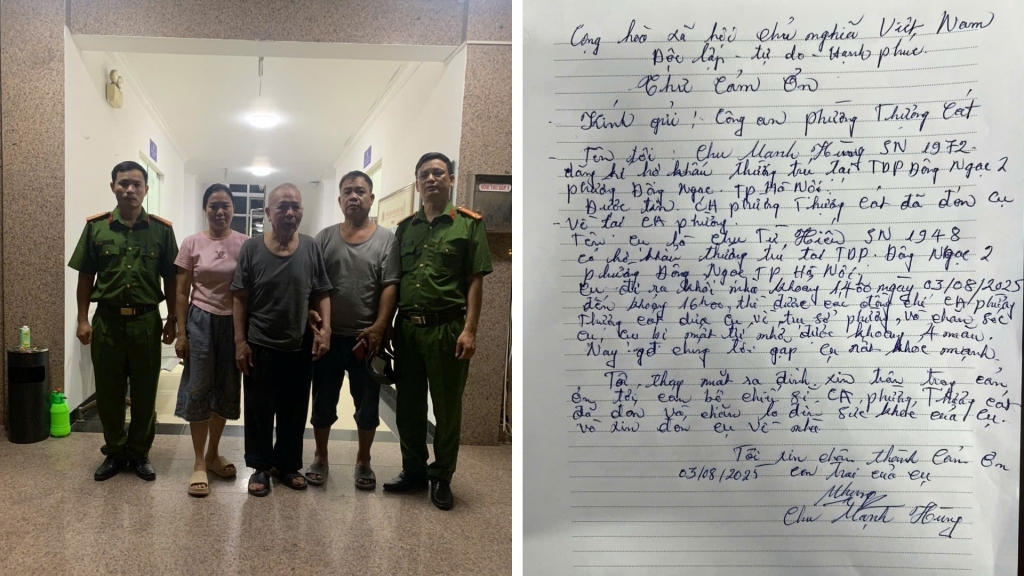 Cộng hòa xã hội chủ nghĩa Việt Nam
Độc lập - tự do - Hạnh phúc.
Thư Cảm Ơn
Kính gửi: Công an phường Thượng Cát
- Tên tôi: Chu Mạnh Hùng SN 1972
đăng kí hộ khẩu thường trú tại TDP Đông Ngạc 2
phường Đông Ngạc. TP Hà Nội.
Được tin CA phường Thượng Cát đã đón cụ
về tại CA phường.
Tên cụ là Chu Tử Hiên SN 1948
có hộ khẩu thường trú tại TDP. Đông Ngạc 2
phường Đông Ngạc TP Hà Nội.
cụ đi ra khỏi nhà khoảng ngày 03/08/2025
đến khoảng 16h00 thì được các đồng chí CA phường
Thượng Cát đưa cụ về trụ sở phường và chăm sóc
cụ, cụ bị mất trí nhớ được khoảng 4 năm.
Nay gđ chúng tôi gặp cụ rất khỏe mạnh.
Tôi thay mặt gia đình xin trân trọng cảm
ơn tới cán bộ chiến sĩ CA phường Thượng Cát
đã đón và chăm lo đến sức khỏe của cụ.
và xin đón cụ về nhà
Tôi xin chân thành cảm ơn
03/08/2025 con trai của cụ
Chu Mạnh Hùng